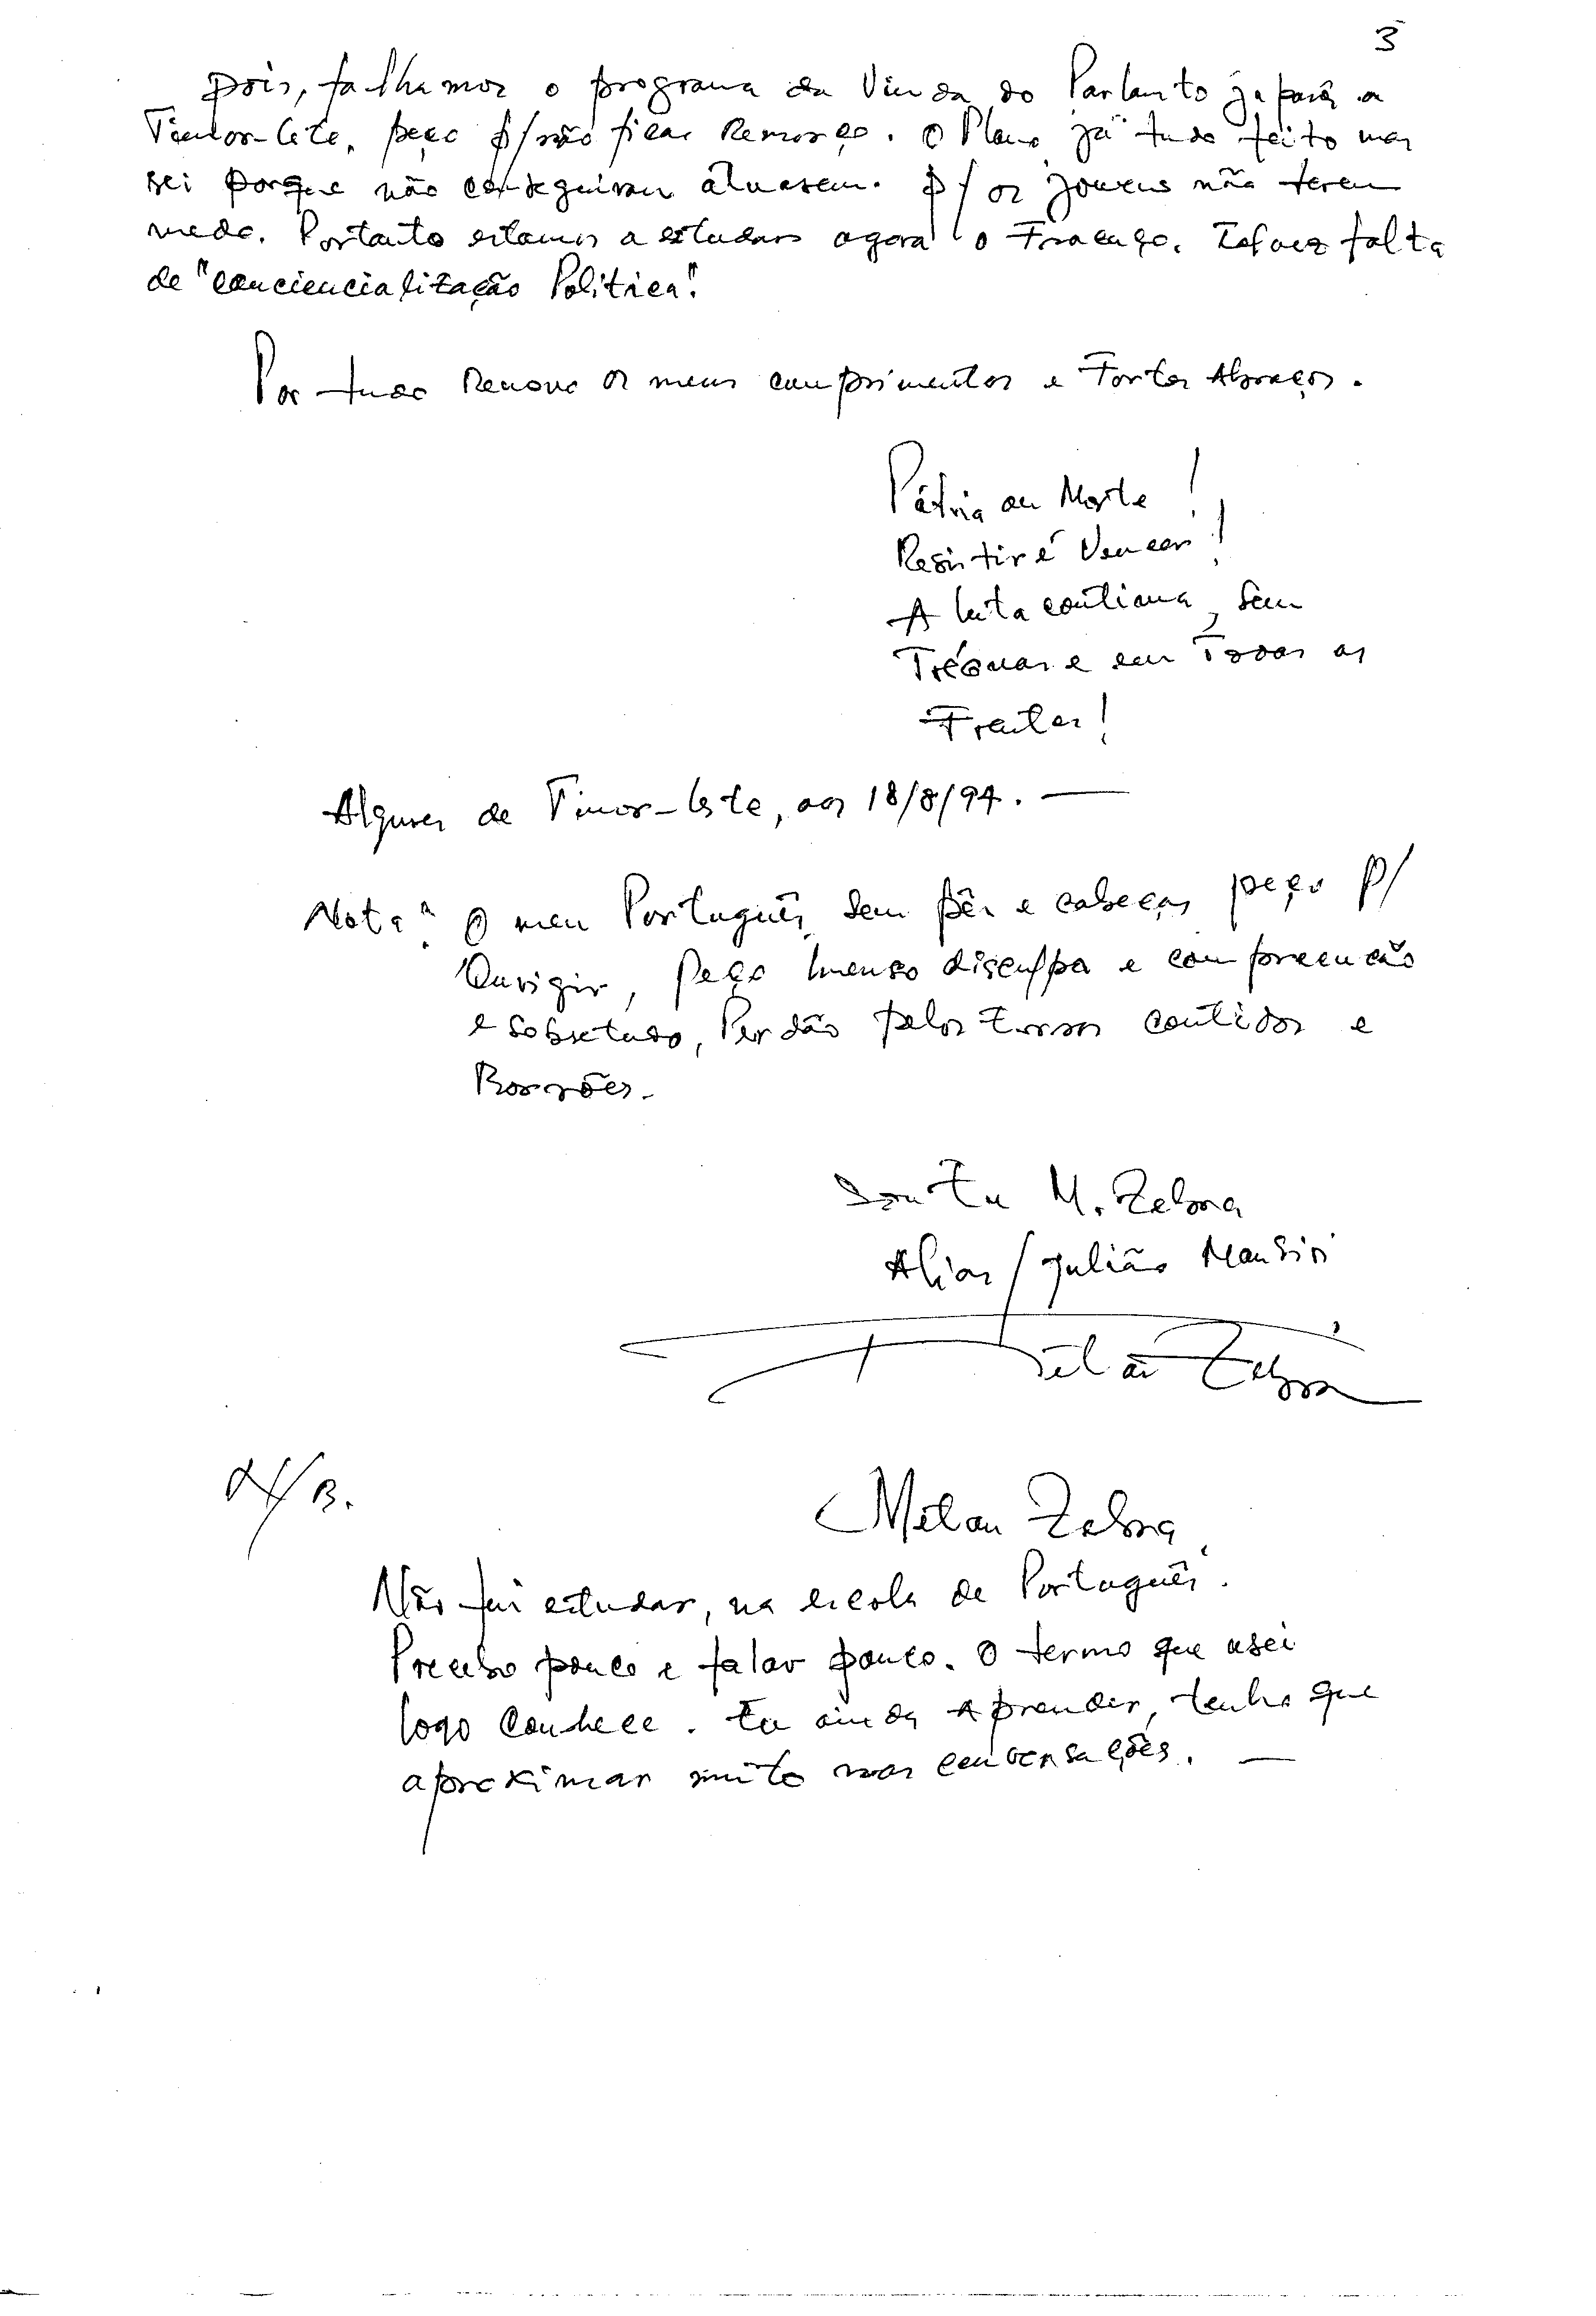 3
pois, falhamos o programa da Vinda do Parlanto japão a
Timor-Leste, peço p/não ficar Remorço. O Plano já tudo feito mas
sei porque não conseguiram p/ os jovens não terem
medo. Portanto estamos a estudar agora o Fracaço. Talvez falta
de "conciencialização Politica".
Por tudo Renovo os meus comprimentos e Fortes Abraços.
Pátria ou Morte !
Resistir é Vencer !
A luta continua, Sem
Tréguas e em Todas as
Frentes !
Algures de Timor-Leste, aos 18/8/94. —
Nota: O meu Português sem pês e cabeças, peço P/
Currigir, Peço Imenso disculpa e compreenção
e sobretudo, Perdão pelos Erros contidos e
Borrões.
Sou Eu M. Zebra
Alias/Julião Mausiri
Zebra
N/B.
Métan Zebra
Não fui estudar, na escola de Português.
Precebo pouco e falar pouco. O termo que usei
logo conhece. Eu ainda Aprender, tenho que
aproximar muito nas conversações. —